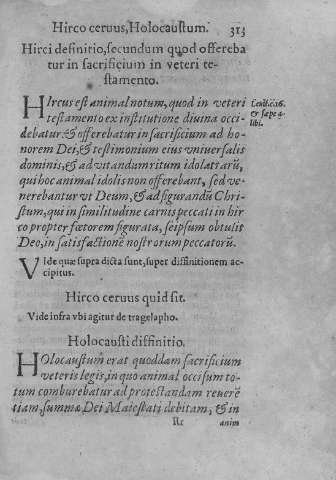 Hirco ceruus, Holocaustum. 313
Hirci definitio, secundum quod offereba
tur in sacrificium in veteri te-
stamento.
HIrcus est animal notum, quod in veteri
testamento ex institutione diuina occi-
debatur: & offerebatur in sacrificium ad ho-
norem Dei, & testimonium eius vniuersalis
dominij, & ad vitandum ritum idolatrarũ,
qui hoc animal idolis non offerebant, sed ve-
nerebantur vt Deum, & ad figurandũ Chri-
stum, qui in similitudine carnis peccati in hir
co propter fœtorem figurata, seipsum obtulit
Deo, in satisfactionē nostrorum peccatorũ.
Leuit. 16.
& sæpe a-
libi.
VIde quæ supra dicta sunt, super diffinitionem ac-
cipitus.
Hirco ceruus quid sit.
Vide infra vbi agitur de tragelapho.
Holocausti diffinitio.
HOlocaustum erat quoddam sacrificium
veteris legis, in quo animal occisum to-
tum comburebatur ad protestandam reuerē
tiam, summæ Dei Maiestati debitam, & in
Rr anim